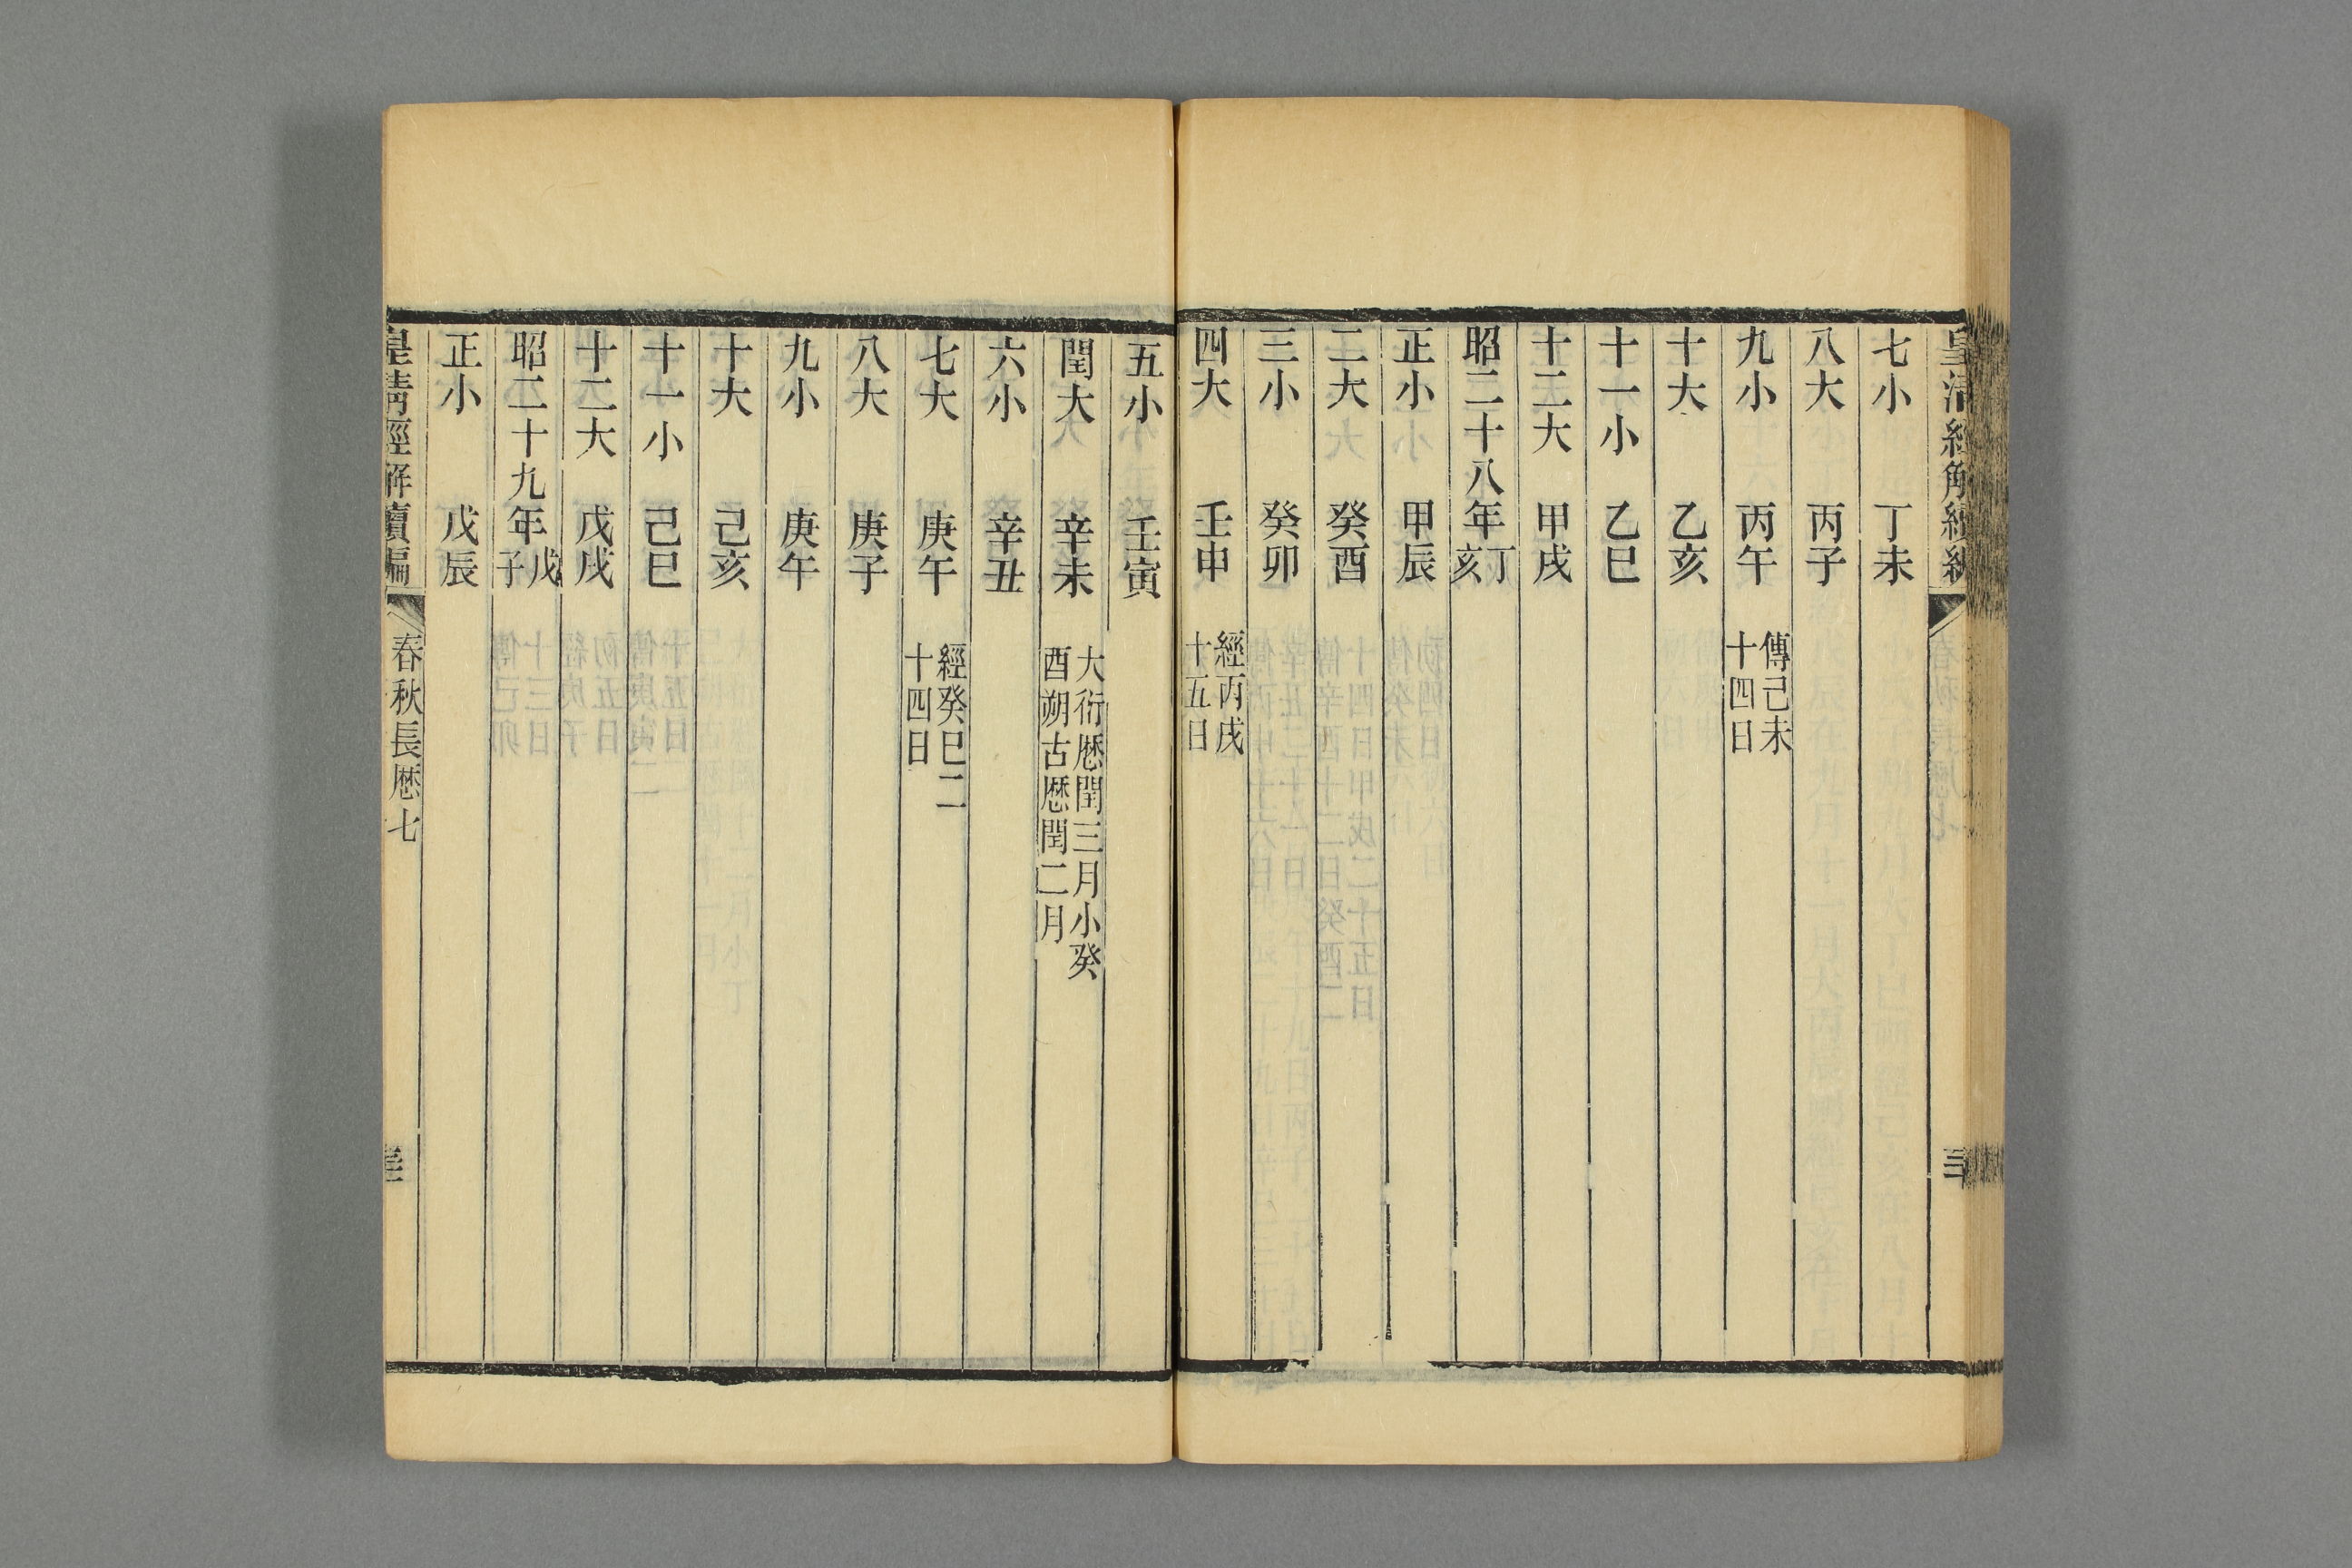 七小 丁未
八大 丙子
九小 丙午 傳己未
十四日
十大 乙亥
十一小 乙巳
十二大 甲戌
昭二十八年丁亥
正小 甲辰
二大 癸酉
三小 癸卯
四大 壬申 經丙戌
十五日
五小 壬寅
閏大 辛未 大衍厯閏三月小癸
酉朔古厯閏二月
六小 辛丑
七大 庚午 經癸巳二
十四日
八大 庚子
九小 庚午
十大 己亥
十一小 己巳
十二大 戊戌
昭二十九年戊子
正小 戊辰
皇清經解續編 春秋長厯七